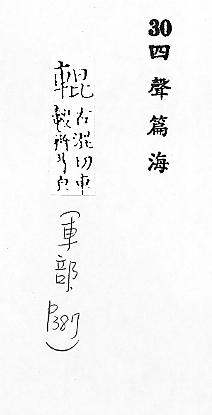 30 四聲篇海
輥 古混切車
轂
(車部, P387)